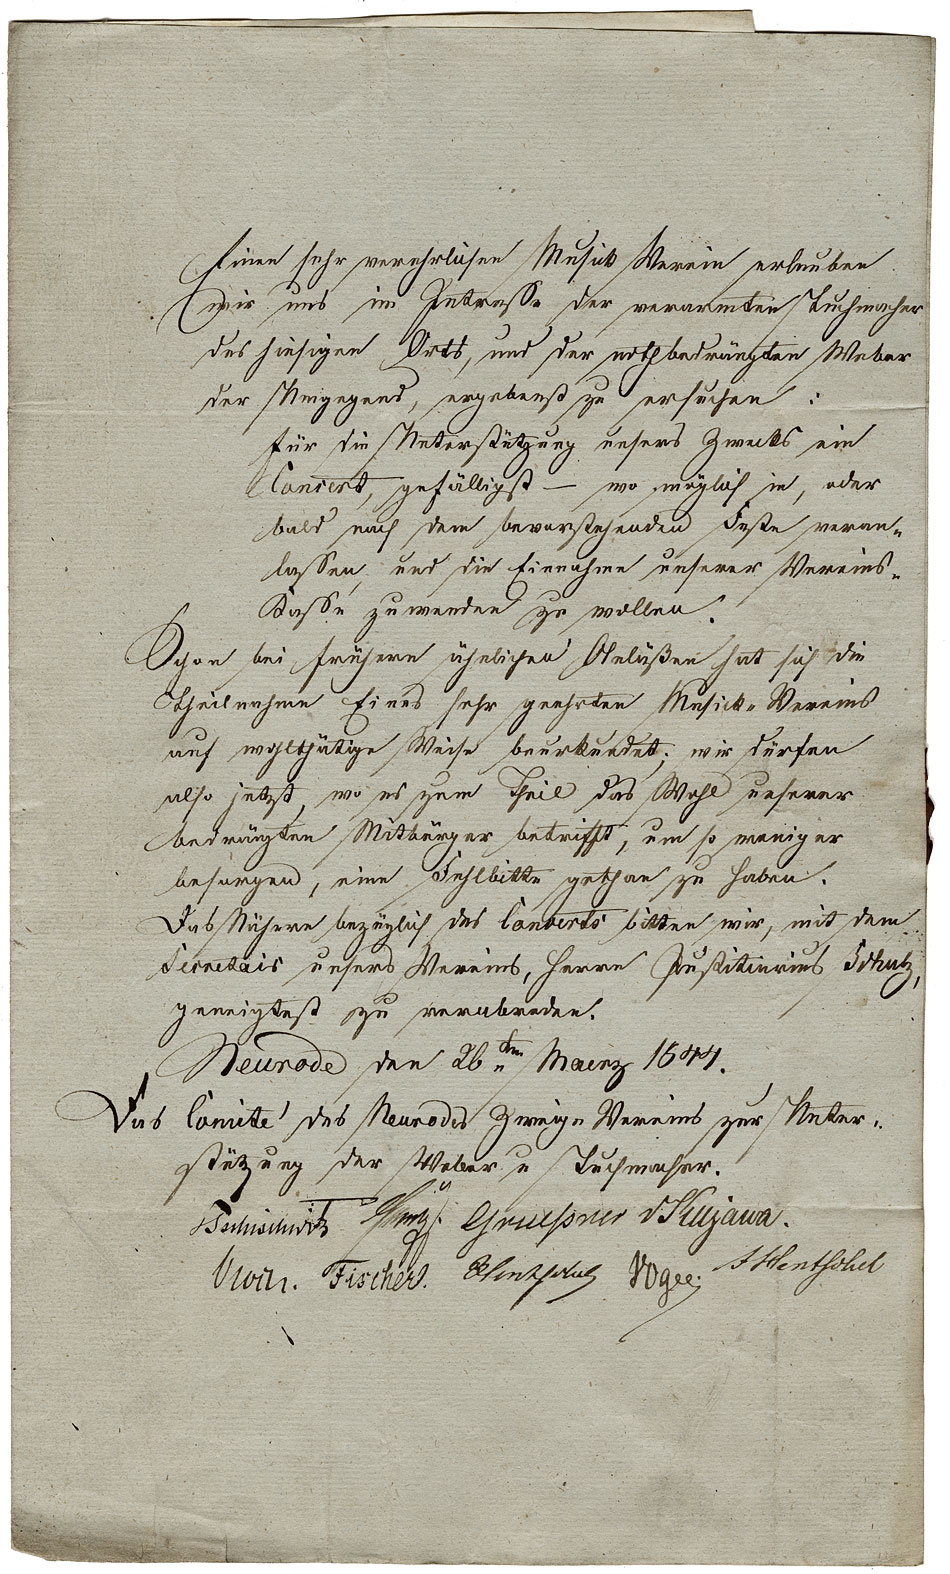 Einen sehr verehrlichen Musick Verein erlauben
wir uns im Intresse der verarmten Tuchmacher
des hiesigen Orts, und der nothbedrängten Weber
der Umgegend, ergebenst zu ersuchen :
für die Unterstützung unsers Zwecks ein
Concert, gefälligst — wo möglich in, oder
bald nach dem bevorstehenden Feste veran„
lassen, und die Einnahme unserer Vereins„
Kasse zuwenden zu wollen.
Schon bei frühern ähnlichen Anläßen hat sich die
Theilnahme Eines sehr geehrten Musick„Vereins
auf wohlthätige Weise beurkundet; wir dürfen
also jetzt, wo es zum Theil das Wohl unserer
bedrängten Mitbürger betrifft, um so weniger
besorgen, eine Fehlbitte gethan zu haben.
Das Nähere bezüglich des Concerts bitten wir, mit dem
Secretair unsers Vereins, Herrn Justitiarius Schulz,
geneigtest zu verabreden.
Neurode den 26ten Maerz 1844.
Das Comité des Neuroder Zweig„Vereins zur Unter„
stützung der Weber u Tuchmacher.
Tschischwitz Gruessner vKujawa.
Fischer. Vogel. Hentschel